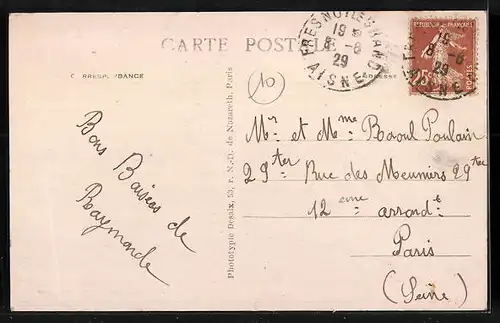 CARTE POSTALE
FRESNOY LE GRAND
19
8-8
29
AISNE
RÉPUBLIQUE FRANÇAISE
C RRESP DANCE
10
ADRESSE
Mr. et Mme Raoul Poulain
29ter Rue des Meuniers 29ter
12ème arrondt
Paris
(Seine)
Bons Baisers de
Raymonde
Phototypie Desaix, 53, r. N.-D. de Nazareth, Paris